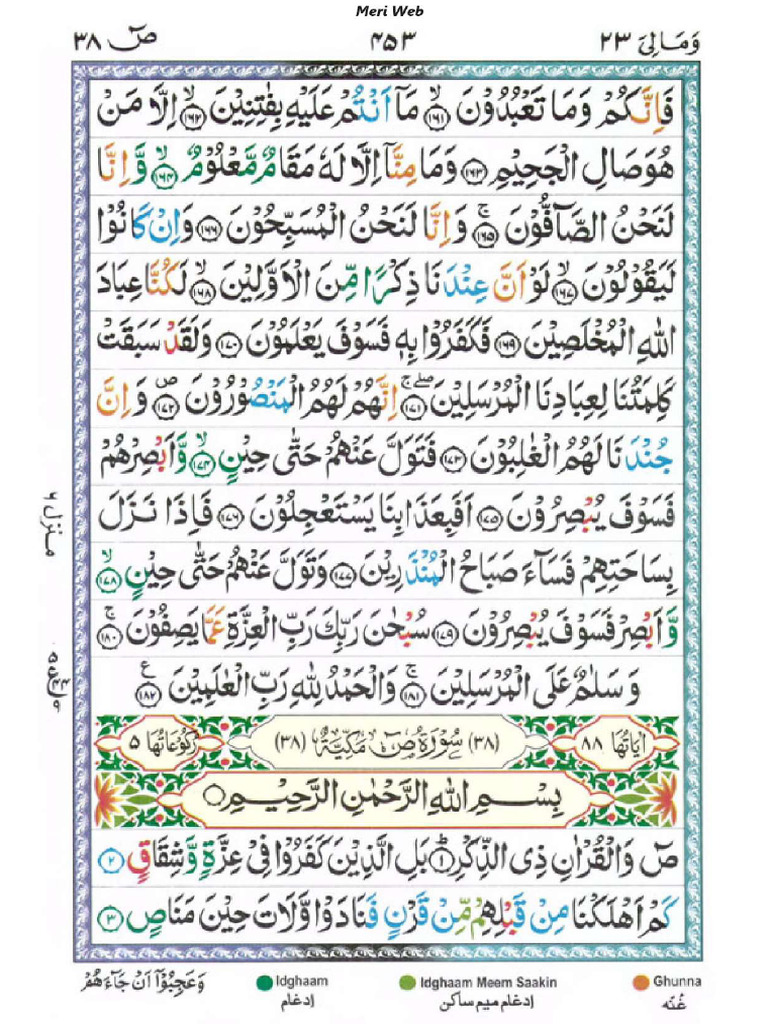 Meri Web
وَمَالِیَ ٢٣
٤٥٣
صٓ ٣٨
فَاِنَّكُمْ وَمَا تَعْبُدُوْنَ ۙ﴿١٦١﴾ مَاۤ اَنْتُمْ عَلَيْهِ بِفٰتِنِيْنَ ۙ﴿١٦٢﴾ اِلَّا مَنْ
هُوَ صَالِ الْجَحِيْمِ ﴿١٦٣﴾ وَمَا مِنَّاۤ اِلَّا لَهٗ مَقَامٌ مَّعْلُوْمٌ ۙ﴿١٦٤﴾ وَّاِنَّا
لَنَحْنُ الصَّآفُّوْنَ ۚ﴿١٦٥﴾ وَاِنَّا لَنَحْنُ الْمُسَبِّحُوْنَ ﴿١٦٦﴾ وَاِنْ كَانُوْا
لَيَقُوْلُوْنَ ۙ﴿١٦٧﴾ لَوْ اَنَّ عِنْدَنَا ذِكْرًا مِّنَ الْاَوَّلِيْنَ ۙ﴿١٦٨﴾ لَكُنَّا عِبَادَ
اللّٰهِ الْمُخْلَصِيْنَ ﴿١٦٩﴾ فَكَفَرُوْا بِهٖ فَسَوْفَ يَعْلَمُوْنَ ﴿١٧٠﴾ وَلَقَدْ سَبَقَتْ
كَلِمَتُنَا لِعِبَادِنَا الْمُرْسَلِيْنَ ۚۖ﴿١٧١﴾ اِنَّهُمْ لَهُمُ الْمَنْصُوْرُوْنَ ۪﴿١٧٢﴾ وَاِنَّ
جُنْدَنَا لَهُمُ الْغٰلِبُوْنَ ﴿١٧٣﴾ فَتَوَلَّ عَنْهُمْ حَتّٰى حِيْنٍ ۙ﴿١٧٤﴾ وَّاَبْصِرْهُمْ
فَسَوْفَ يُبْصِرُوْنَ ﴿١٧٥﴾ اَفَبِعَذَابِنَا يَسْتَعْجِلُوْنَ ﴿١٧٦﴾ فَاِذَا نَزَلَ
بِسَاحَتِهِمْ فَسَآءَ صَبَاحُ الْمُنْذَرِيْنَ ﴿١٧٧﴾ وَتَوَلَّ عَنْهُمْ حَتّٰى حِيْنٍ ۙ﴿١٧٨﴾
وَّاَبْصِرْ فَسَوْفَ يُبْصِرُوْنَ ﴿١٧٩﴾ سُبْحٰنَ رَبِّكَ رَبِّ الْعِزَّةِ عَمَّا يَصِفُوْنَ ۚ﴿١٨٠﴾
وَسَلٰمٌ عَلَى الْمُرْسَلِيْنَ ۚ﴿١٨١﴾ وَالْحَمْدُ لِلّٰهِ رَبِّ الْعٰلَمِيْنَ ﴿١٨٢﴾ ع
منزل ٦
اٰيَاتُهَا ٨٨
(٣٨) سُوْرَةُ صٓ مَكِّيَّةٌ (٣٨)
رُكُوْعَاتُهَا ٥
بِسْمِ اللّٰهِ الرَّحْمٰنِ الرَّحِيْمِ
صٓ وَالْقُرْاٰنِ ذِى الذِّكْرِ ؕ﴿١﴾ بَلِ الَّذِيْنَ كَفَرُوْا فِىْ عِزَّةٍ وَّشِقَاقٍ ﴿٢﴾
كَمْ اَهْلَكْنَا مِنْ قَبْلِهِمْ مِّنْ قَرْنٍ فَنَادَوْا وَّلَاتَ حِيْنَ مَنَاصٍ ﴿٣﴾
Ghunna
غُنّه
Idghaam Meem Saakin
اِدغام میم ساکن
Idghaam
اِدغام
وَعَجِبُوْۤا اَنْ جَآءَهُمْ